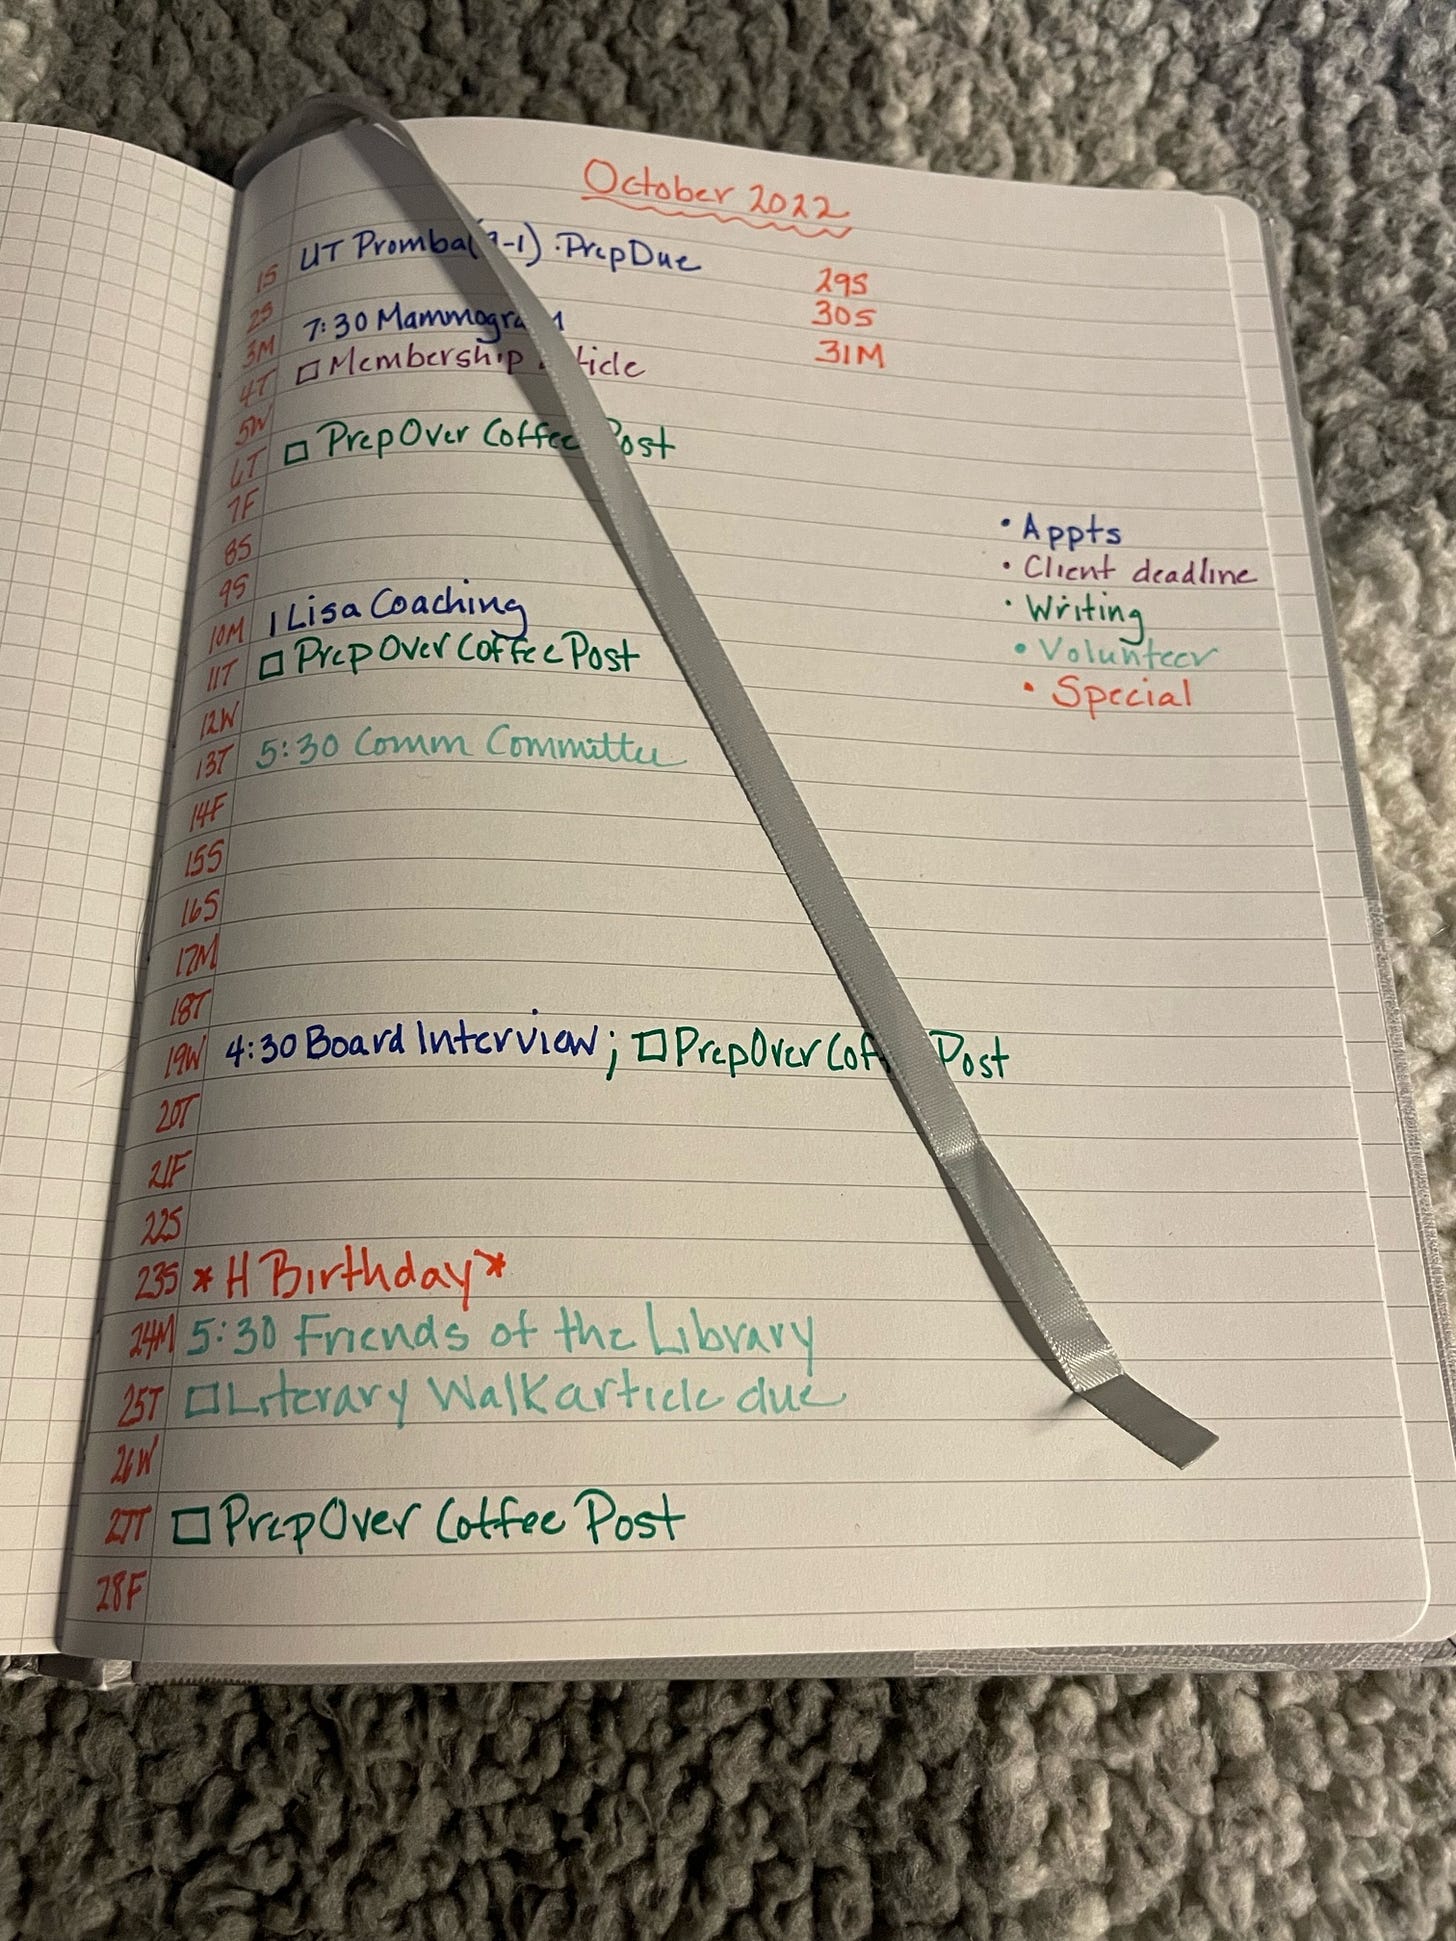 October 2022
1S UT (9-1) · Prep Due
2S
3M 7:30 Mammogram
4T □ Membership
5W
6T □ Prep Over Coffee Post
7F
8S
9S
10M 1 Lisa Coaching
11T □ Prep Over Coffee Post
12W
13T 5:30 Comm Committee
14F
15S
16S
17M
18T
19W 4:30 Board Interview; □ Prep Over Coffee Post
20T
21F
22S
23S *H Birthday*
24M 5:30 Friends of the Library
25T □ Literary Walk article due
26W
27T □ Prep Over Coffee Post
28F
29S
30S
31M
• Appts
• Client deadline
• Writing
• Volunteer
• Special